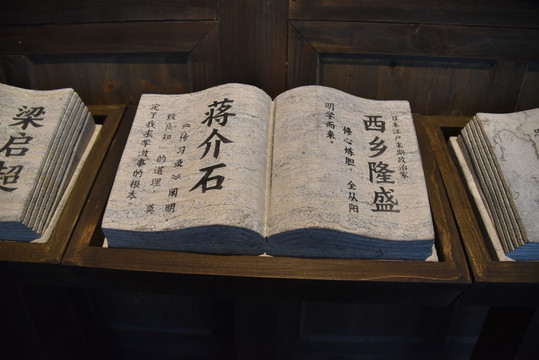 日本江户末期政治家
西乡隆盛
修心炼胆，全从阳
明学而来。
蒋介石
《传习录》阐明
“致良知”的道理，奠
定了我求学做事的根本
梁启超